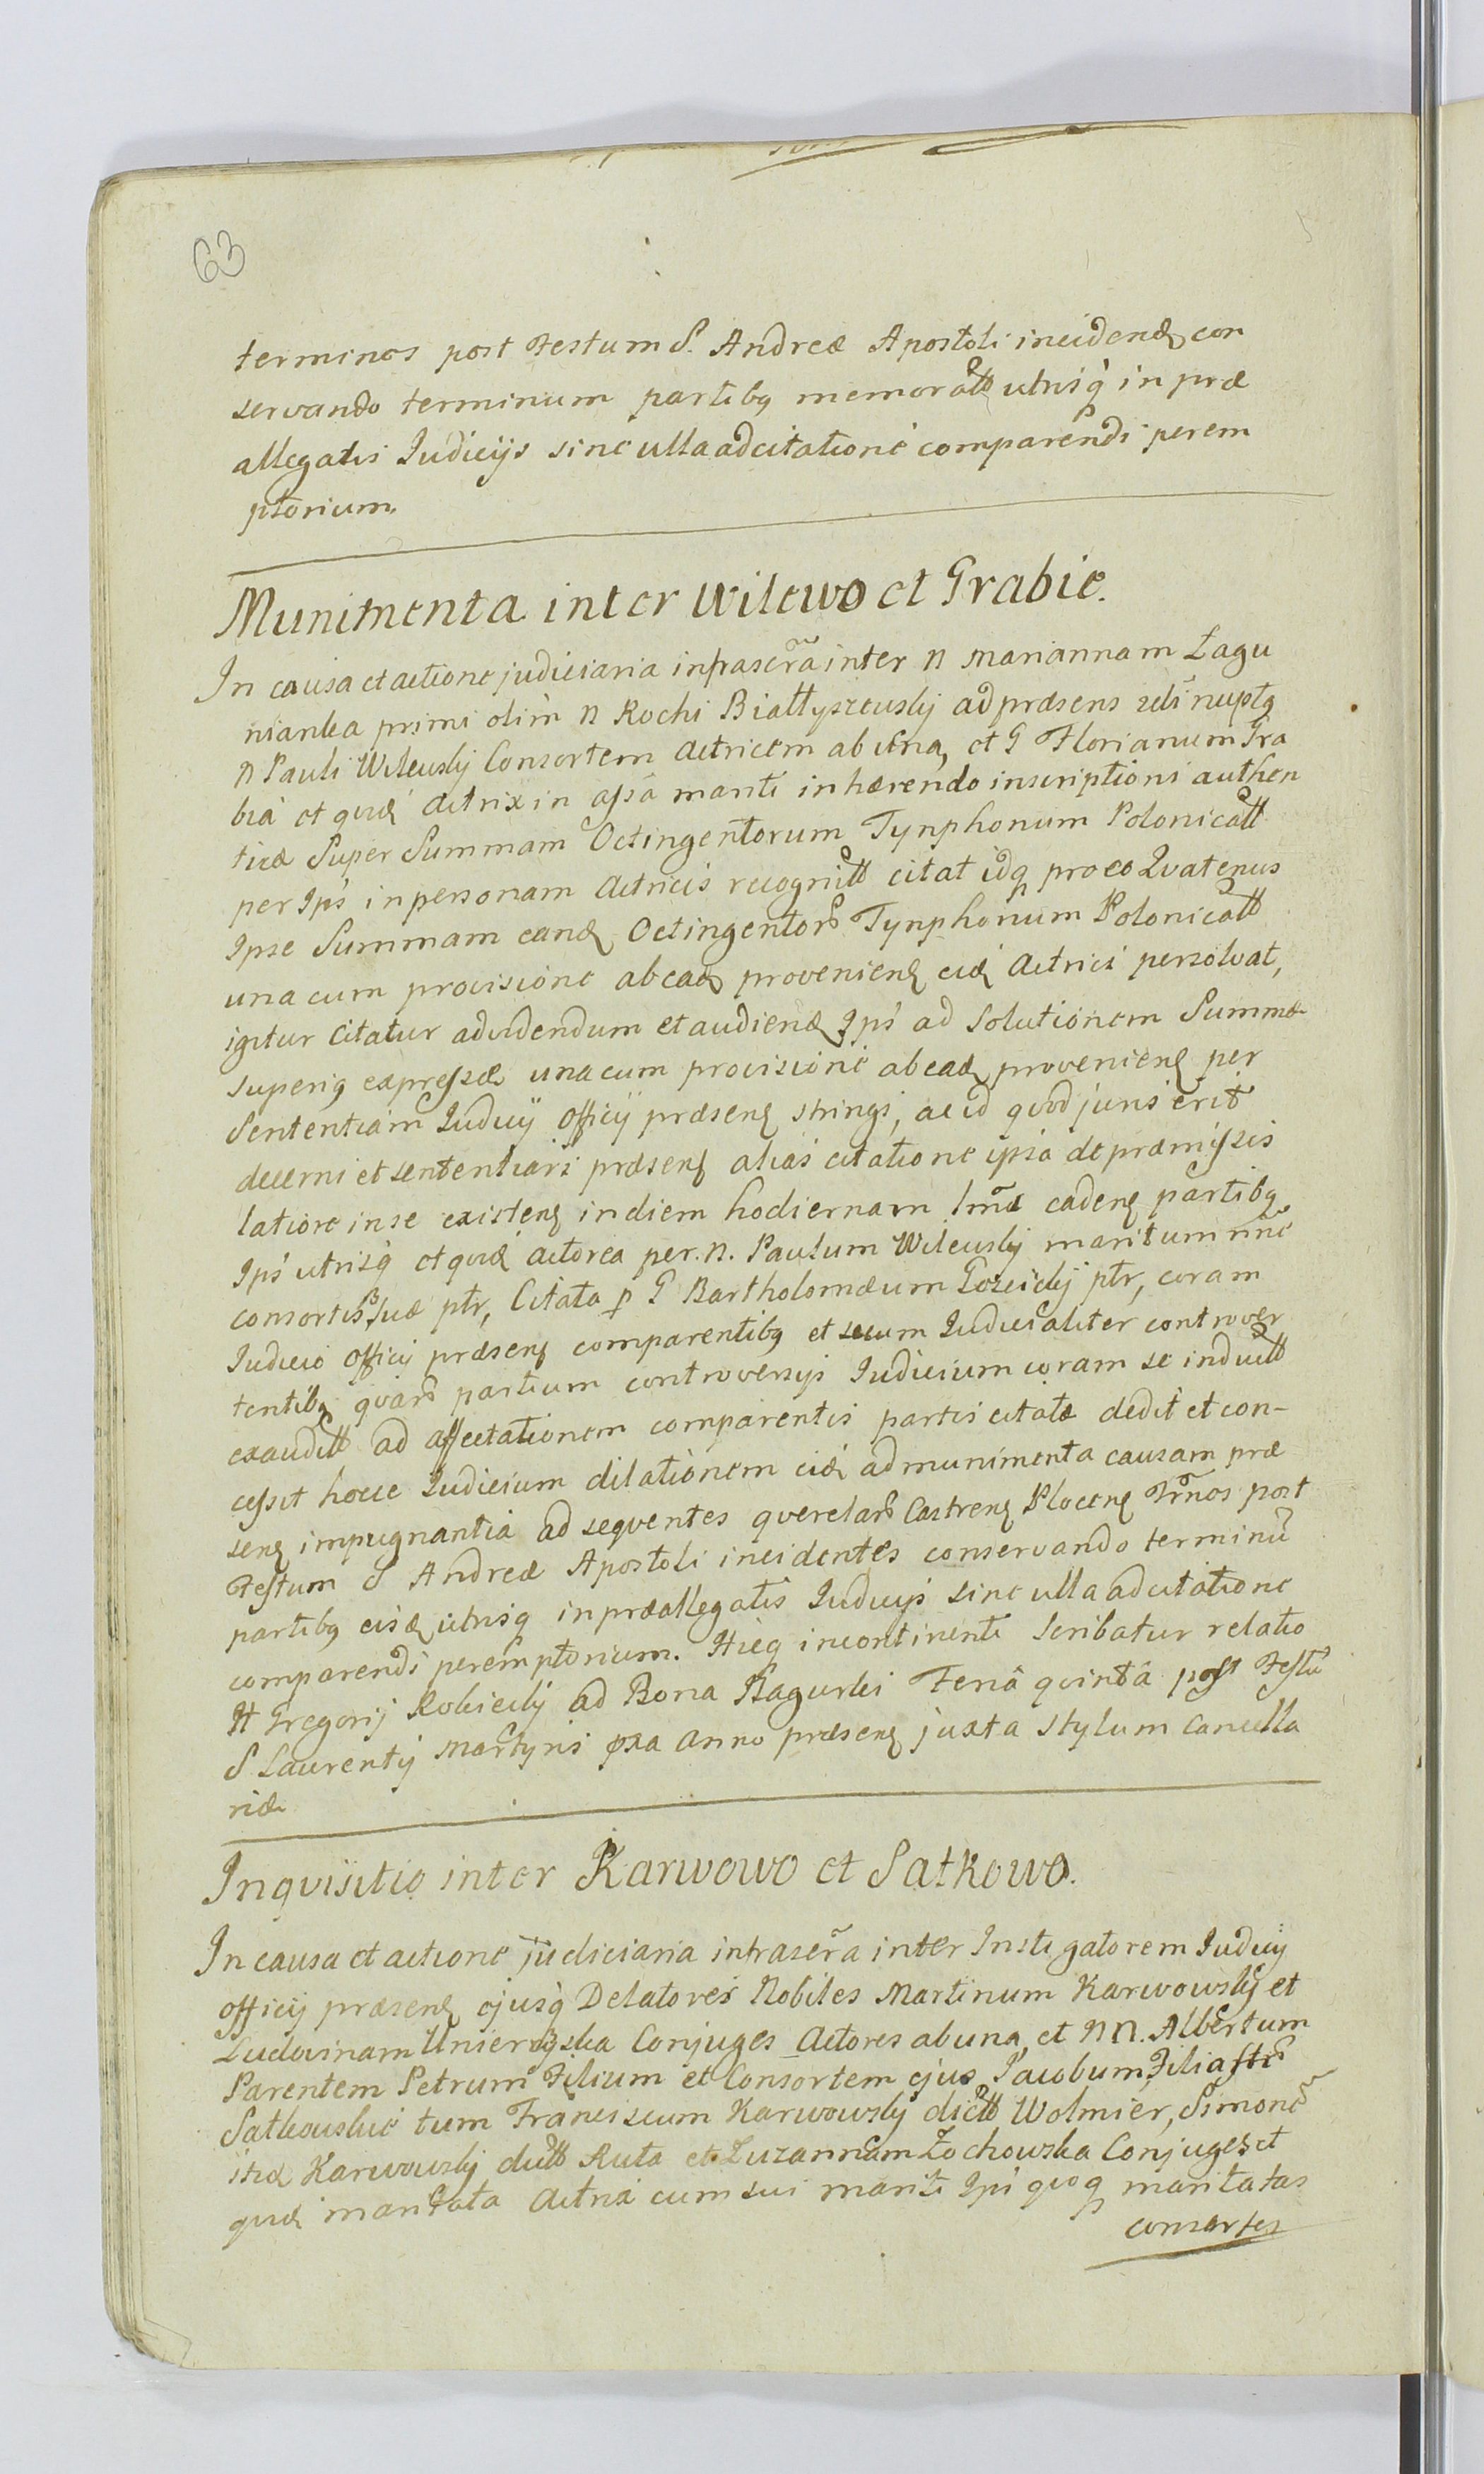 63
terminos post Festum S. Andreæ Apostoli inciden con
servando terminum partibq memoratt utrisq in præ
allegatis Judicijs sine ulla adcitatione comparendi perem
ptorium.
Munimenta inter Wilewo et Grabie.
In causa et actione judiciaria infrascra inter N Mariannam Łagu
nianka primi olim N Rochi Białłyszewskij ad præsens nuptą
N Pauli Wilewskij Consortem Actricem ab una, et G Florianum Gra
bia et quid Actrix in assa mariti inhærendo inscriptioni authen
ticæ Super Summam Octingentorum Tynphonum Polonicatt
per Ips in personam Actricis recognitt citat idq pro eo Quatenus
Ipse Summam eand Octingentor Tynphonum Polonicatt
una cum provisione ab ead provenien eid Actrici persolvat,
igitur Citatur ad videndum et audiend Ips ad Solutionem Summæ
superiq expressæ una cum provisione ab ead provenien per
Sententiam Judicij Officij præsen stringi, ac id quod juris erit
decerni et sententiari præsen alias citatione ipsa de præmissis
latiore in se existen in diem hodiernam lmæ caden partibq
Ips utrisq et quid actorea per N. Paulum Wilewskij maritum nne
consortis suæ ptr, Citata p G Bartholomæum Gozickij ptr, coram
Judicio Officij præsen comparentibq et secum Judicialiter controver
tentibq quar partium controversijs Judicium coram se inductt
exauditt ad affectationem comparentis partis citatæ dedit et con-
cessit hocce Judicium dilationem eid ad munimenta causam præ
sen impugnantia ad seqventes querelar Castren Plocen Trnos post
Festum S Andreæ Apostoli incidentes conservando terminu
partibq eisd utrisq in præallegatis Judicijs sine ulla adcitatione
comparendi peremptorium. Hicq incontinenti scribatur relatio
H Gregorij Rokickij ad Bona Bagurki Feria quinta post Festu
S Laurentij Martyris pxa Anno præsen juxta stylum Cancella
riæ
Inquisitio inter Karwowo et Satkowo.
In causa et actione judiciaria infrascra inter Instigatorem Judicij
officij præsen ejusq Delatores Nobiles Martinum Karwowskij et
Ludovinam Unierzyska Conjuges Actores ab una, et NN. Albertum
Parentem Petrum Filium et Consortem ejus Jacobum Filiastr
Satkowskie tum Franciscum Karwowskij dictt Wolmier, Simone
itid Karwowskij dictt Ruta et Zuzannam Zochowska Conjuges et
quid maritata Actria cum sui mariti Ips quoq maritatas
consortes